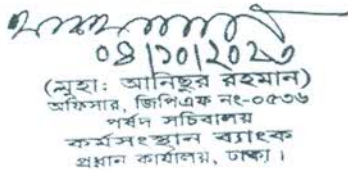 ০৪|১০|২০২৩
(মুহা: আনিছুর রহমান)
অফিসার, জিপিএফ নং-০৫৩৬
পর্ষদ সচিবালয়
কর্মসংস্থান ব্যাংক
প্রধান কার্যালয়, ঢাকা।